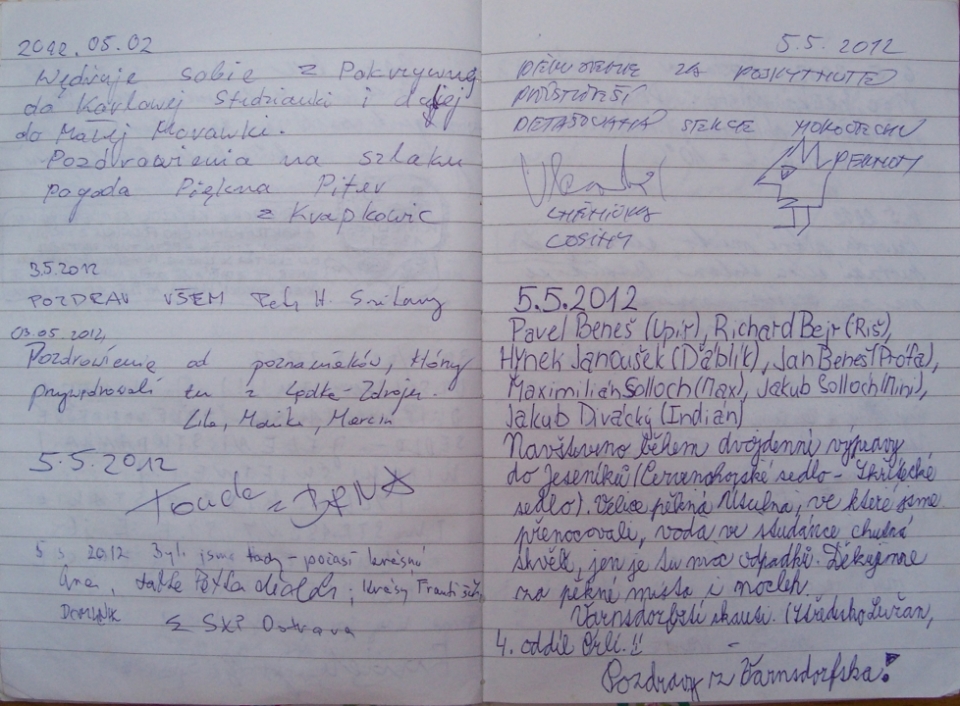 2012.05.02
Wędruję sobie z Pokrzywnej
do Karlowej Studzianki i dalej
do Małej Moravki.
Pozdrowienia na szlaku
pogoda Piękna Piter
z Krapkowic
3.5.2012
POZDRAV VŠEM Petr H.
03.05.2012
Pozdrowienia od poznaniaków, którzy
przywędrowali tu z Lądka-Zdroju.
Marcin
5.5.2012
Touda z BRNA
5 5. 2012 Byli jsme tady - počasí krásný
krásný
DOMINIK
z SKP Ostrava
5.5. 2012
DĚKUJEME ZA POSKYTNUTÉ
PŘÍSTŘEŠÍ
DETAŠOVANÁ SEKCE
5.5.2012
Pavel Beneš (Upír), Richard Bejr (Riš),
Hynek Janoušek (Ďáblík), Jan Beneš (Prófa),
Maximilián Solloch (Max), Jakub Solloch (Mini),
Jakub Divácký (Indián)
Navštíveno během dvojdenní výpravy
do Jeseníků (Červenohorské sedlo - Skřítecké
sedlo). Velice pěkná útulna, ve které jsme
přenocovali, voda ve studánce chutná
skvěle, jen je tu moc odpadků. Děkujeme
za pěkné místo i nocleh.
Varnsdorfští skauti. (Středisko Lužan,
4. oddíl Orlí. !!
Pozdravy z Varnsdorfska!